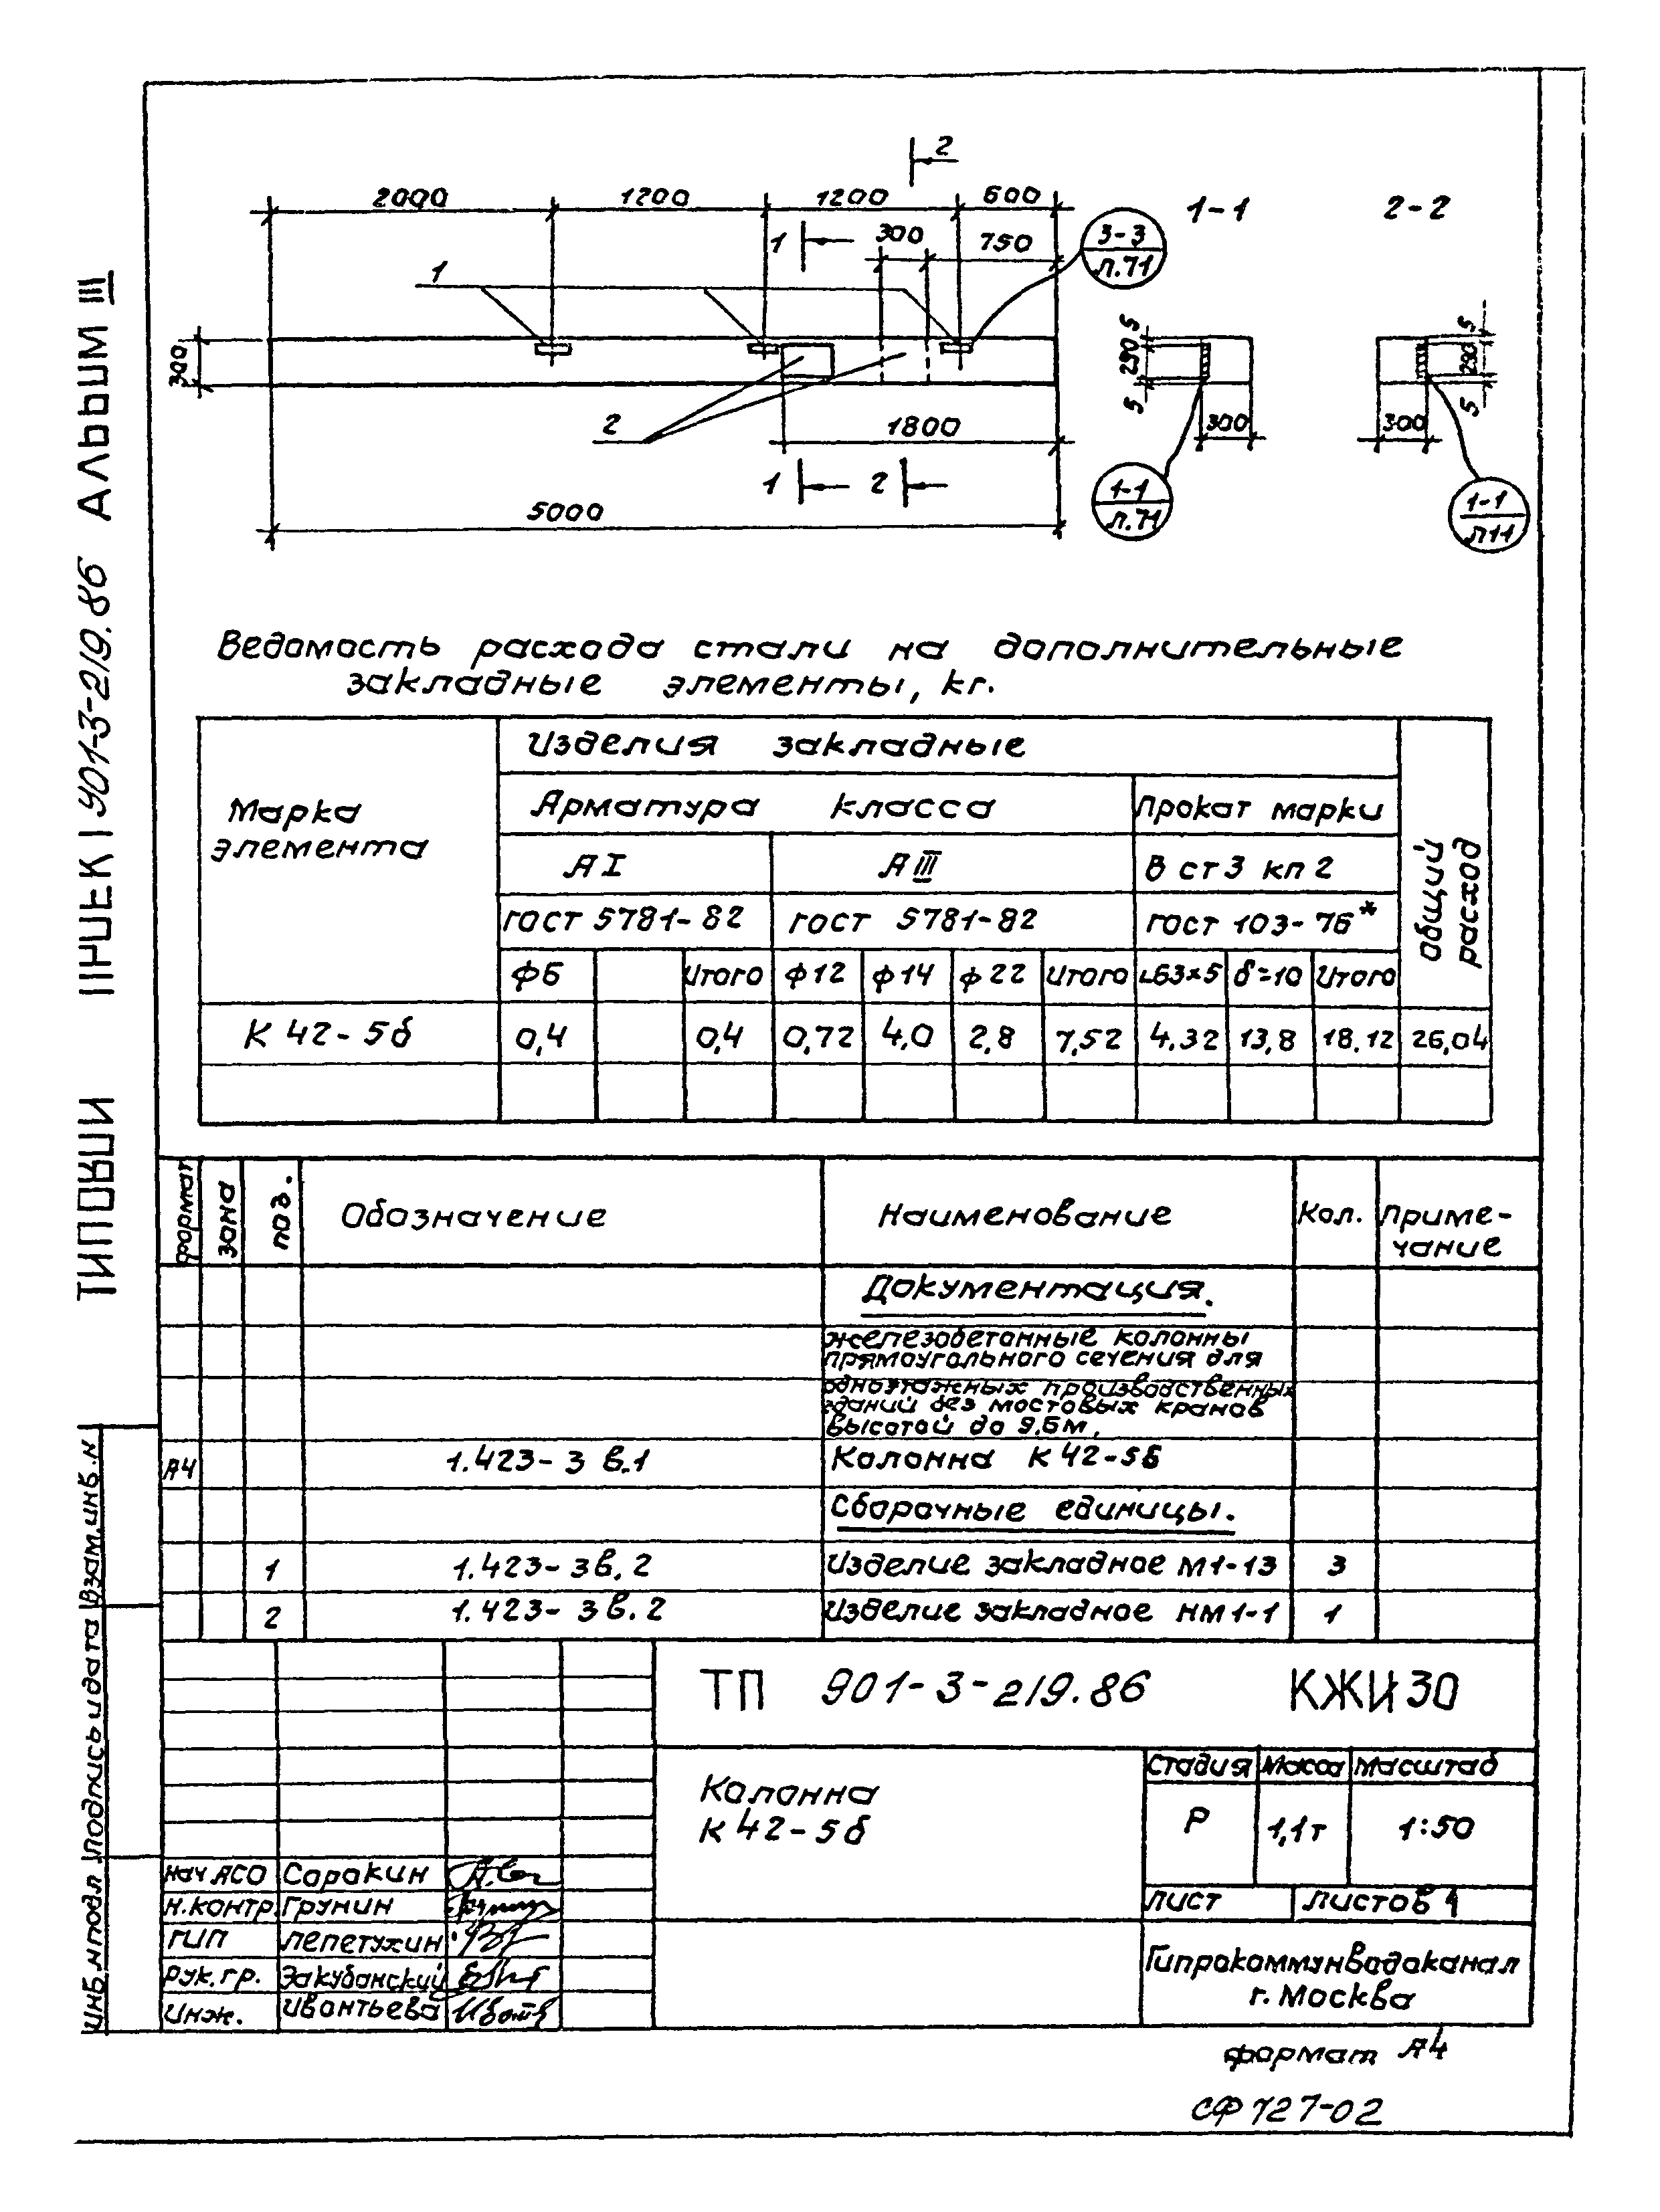 2
2000 1200 1200 600 1-1 2-2
1 300 750 3-3
л.71
1
300
5 290 5
5 290 5
2 1800 300 300
1 2 1-1
л.71
1-1
л11
5000
Ведомость расхода стали на дополнительные
закладные элементы, кг.
Марка
элемента
Изделия закладные
Общий
расход
Арматура класса Прокат марки
А I А III В ст 3 кп 2
ГОСТ 5781-82 ГОСТ 5781-82 ГОСТ 103-76*
ф6 Итого ф12 ф14 ф22 Итого L63×5 δ=10 Итого
К 42-5б 0,4 0,4 0,72 4,0 2,8 7,52 4.32 13,8 18.12 26,04
формат зона поз. Обозначение Наименование Кол. Приме-
чание
Документация.
железобетонные колонны
прямоугольного сечения для
одноэтажных производственных
зданий без мостовых кранов
высотой до 9.6м.
А4 1.423-3 в.1 Колонна К 42-5б
Сборочные единицы.
1 1.423-3в.2 Изделие закладное М1-13 3
2 1.423-3в.2 Изделие закладное НМ1-1 1
ТП 901-3-219.86 КЖИ30
Колонна
К 42-5б
Стадия Масса Масштаб
Р 1,1т 1:50
Лист Листов 1
Гипрокоммунводоканал
г. Москва
Нач АСО Сорокин
Н.контр. Грунин
ГИП Лепетухин
Рук.гр. Закубанский
Инж. Ивонтьева
формат А4
СФ 727-02
901-3-219.86 Альбом III
Взам.инв.н
Подпись и дата
Инв.нподл.